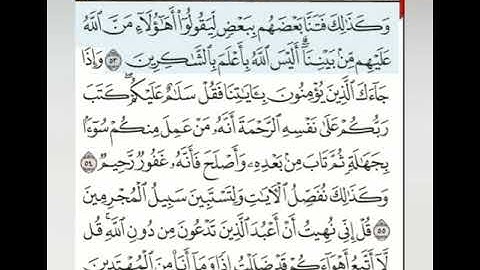 وَكَذَٰلِكَ فَتَنَّا بَعْضَهُم بِبَعْضٍ لِّيَقُولُوٓا۟ أَهَٰٓؤُلَآءِ مَنَّ ٱللَّهُ
عَلَيْهِم مِّنۢ بَيْنِنَآ ۗ أَلَيْسَ ٱللَّهُ بِأَعْلَمَ بِٱلشَّٰكِرِينَ ٥٣ وَإِذَا
جَآءَكَ ٱلَّذِينَ يُؤْمِنُونَ بِـَٔايَٰتِنَا فَقُلْ سَلَٰمٌ عَلَيْكُمْ ۖ كَتَبَ
رَبُّكُمْ عَلَىٰ نَفْسِهِ ٱلرَّحْمَةَ ۖ أَنَّهُۥ مَنْ عَمِلَ مِنكُمْ سُوٓءًۢا
بِجَهَٰلَةٍ ثُمَّ تَابَ مِنۢ بَعْدِهِۦ وَأَصْلَحَ فَأَنَّهُۥ غَفُورٌ رَّحِيمٌ ٥٤
وَكَذَٰلِكَ نُفَصِّلُ ٱلْـَٔايَٰتِ وَلِتَسْتَبِينَ سَبِيلُ ٱلْمُجْرِمِينَ
٥٥ قُلْ إِنِّى نُهِيتُ أَنْ أَعْبُدَ ٱلَّذِينَ تَدْعُونَ مِن دُونِ ٱللَّهِ ۚ قُل
لَّآ أَتَّبِعُ أَهْوَآءَكُمْ ۙ قَدْ ضَلَلْتُ إِذًا وَمَآ أَنَا۠ مِنَ ٱلْمُهْتَدِينَ